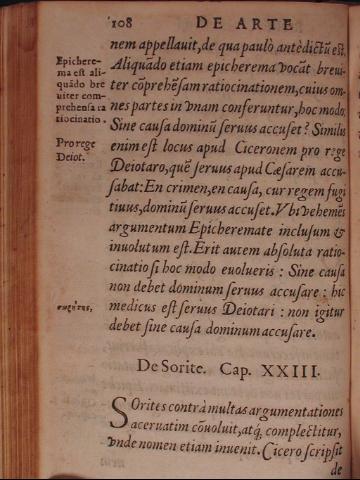 108 DE ARTE
nem appellauit, de qua paulò antè dictū est.
Epichere-
ma est ali-
quādo bre
uiter com-
prehensa ra
tiocinatio.
Aliquādo etiam epicherema vocāt breui-
ter cōprehēsam ratiocinationem, cuius om-
nes partes in vnam conferuntur, hoc modo:
Sine causa dominū seruus accuset? Similis
Pro rege
Deiot.
enim est locus apud Ciceronem pro rege
Deiotaro, quē seruus apud Cæsarem accu-
sabat: En crimen, en causa, cur regem fugi
tiuus, dominū seruus accuset. Vbi vehemēs
argumentum Epicheremate inclusum &
inuolutum est. Erit autem absoluta ratio-
cinatio si hoc modo euolueris: Sine causa
non debet dominum seruus accusare: hic
medicus est seruus Deiotari: non igitur
debet sine causa dominum accusare.
De Sorite. Cap. XXIII.
SOrites contrà multas argumentationes
aceruatim cōuoluit, atq; complectitur,
vnde nomen etiam inuenit. Cicero scripsit
de